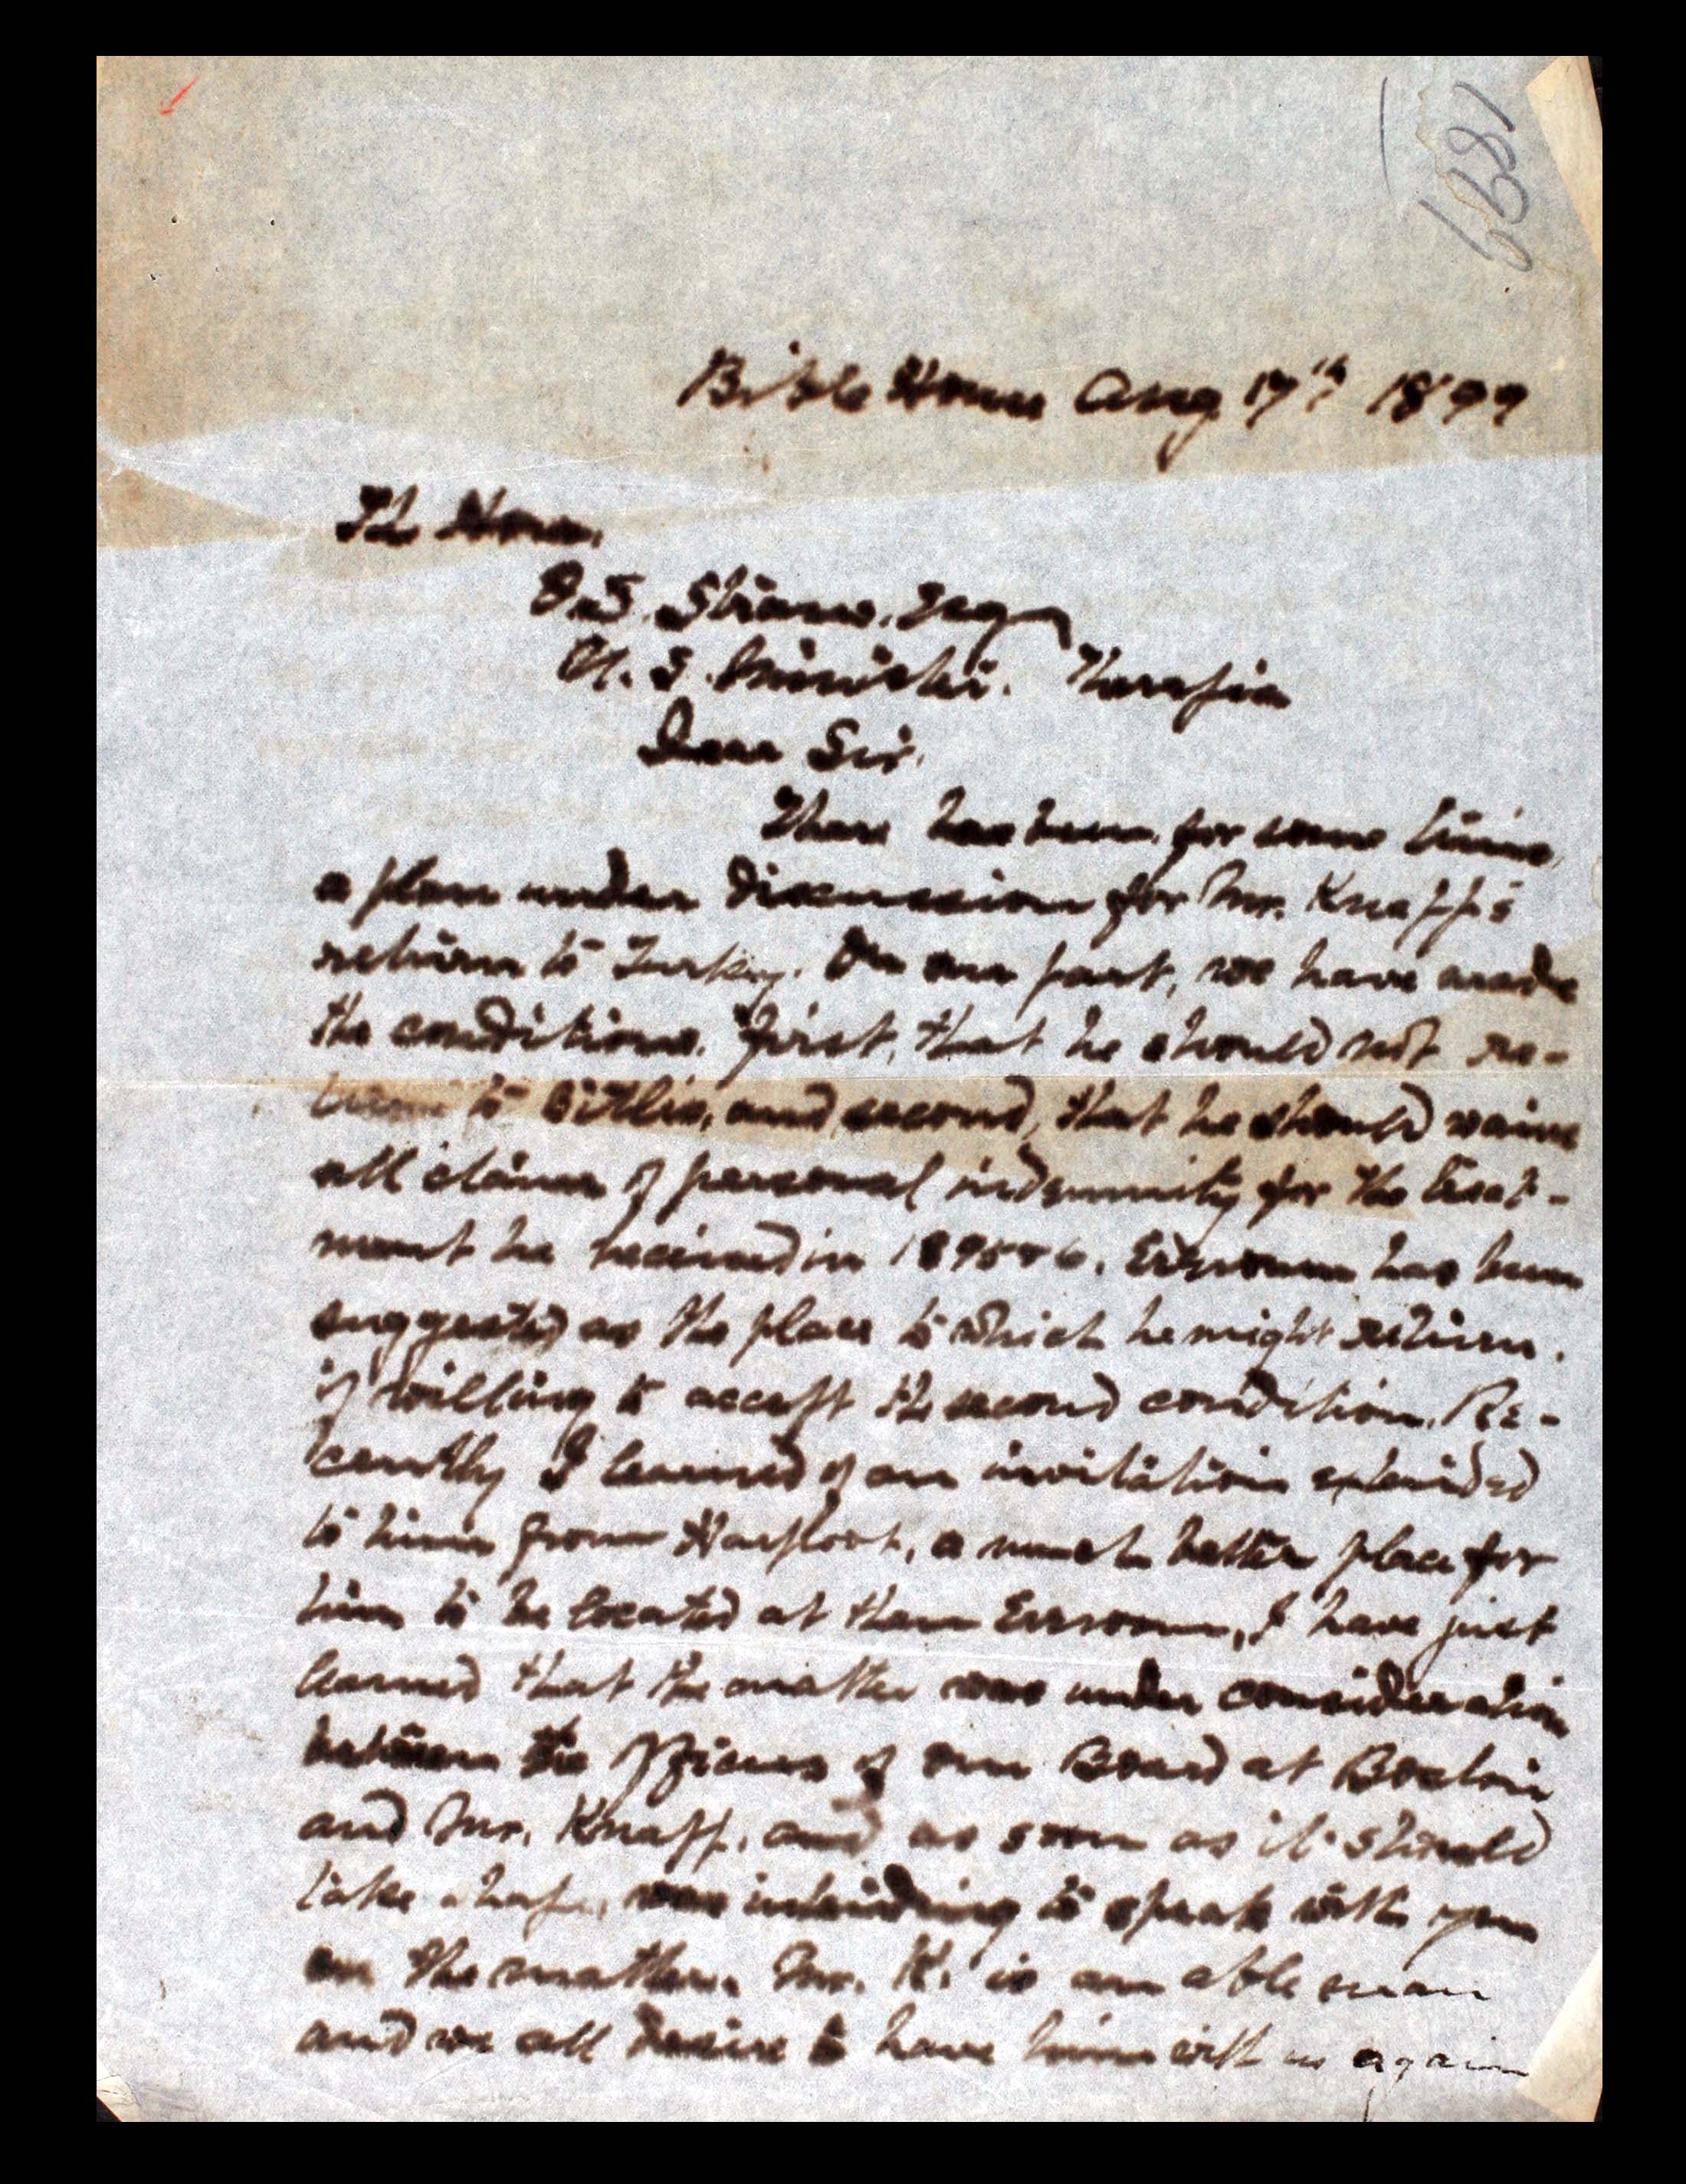 1899
Bible House Aug 17th 1899
The Hon.
O.S. Straus, Esq
U.S. Minister. Therapia
Dear Sir.
There has been for some time,
a plan under discussion for Mr. Knapp's
return to Turkey. On our part, we have made
the conditions. First, that he should not re-
turn to Bitlis, and second, that he should waive
all claims of personal indemnity for the treat-
ment he received in 1895 & 6. Erzroum has been
suggested as the place to which he might return.
if willing to accept the second condition. Re-
cently I learned of an invitation extended
to him from Harpoot, a much better place for
him to be located at than Erzroum, I have just
learned that the matter was under consideration
between the officers of our Board at Boston
and Mr. Knapp, and as soon as it should
take shape, was intending to speak with you
on the matter. Mr. K. is an able man
and we all desire to have him with us again